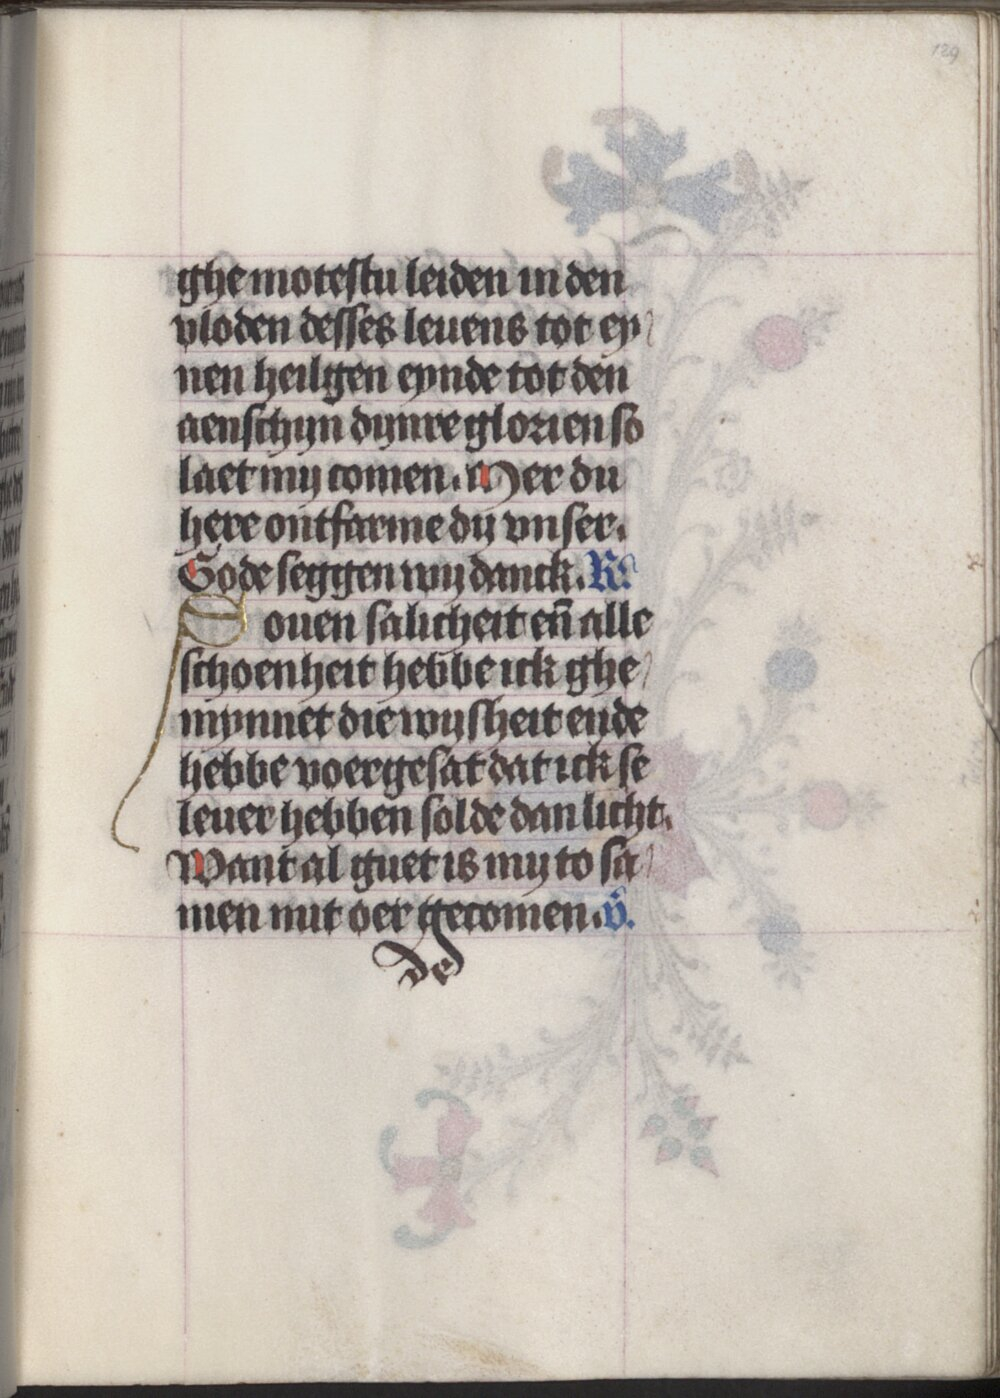 129
ghe motestu leiden in den
vloden desses leuens tot ey
nen heilgen eynde tot den
aenschijn dijnre glorien so
laet mij comen. Mer du
here ontfarme dij vnser.
Gode seggen wij danck. R.
Bouen salicheit en̄ alle
schoenheit hebbe ick ghe
mynnet die wijsheit ende
hebbe voergesat dat ick se
leuer hebben solde dan licht.
Want al guet is mij to sa
men mit oer gecomen. v̄.
de